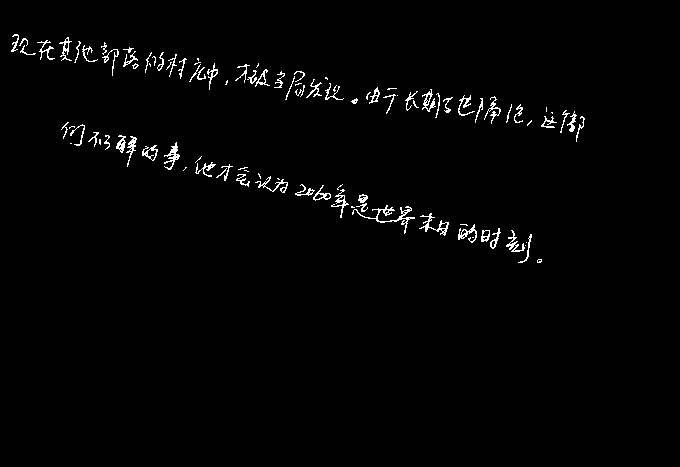 现在其他部落的村庄中，才被当局发现。由于长期与世隔绝，这个部
们不了解的事，他才会认为2060年是世界末日的时刻。